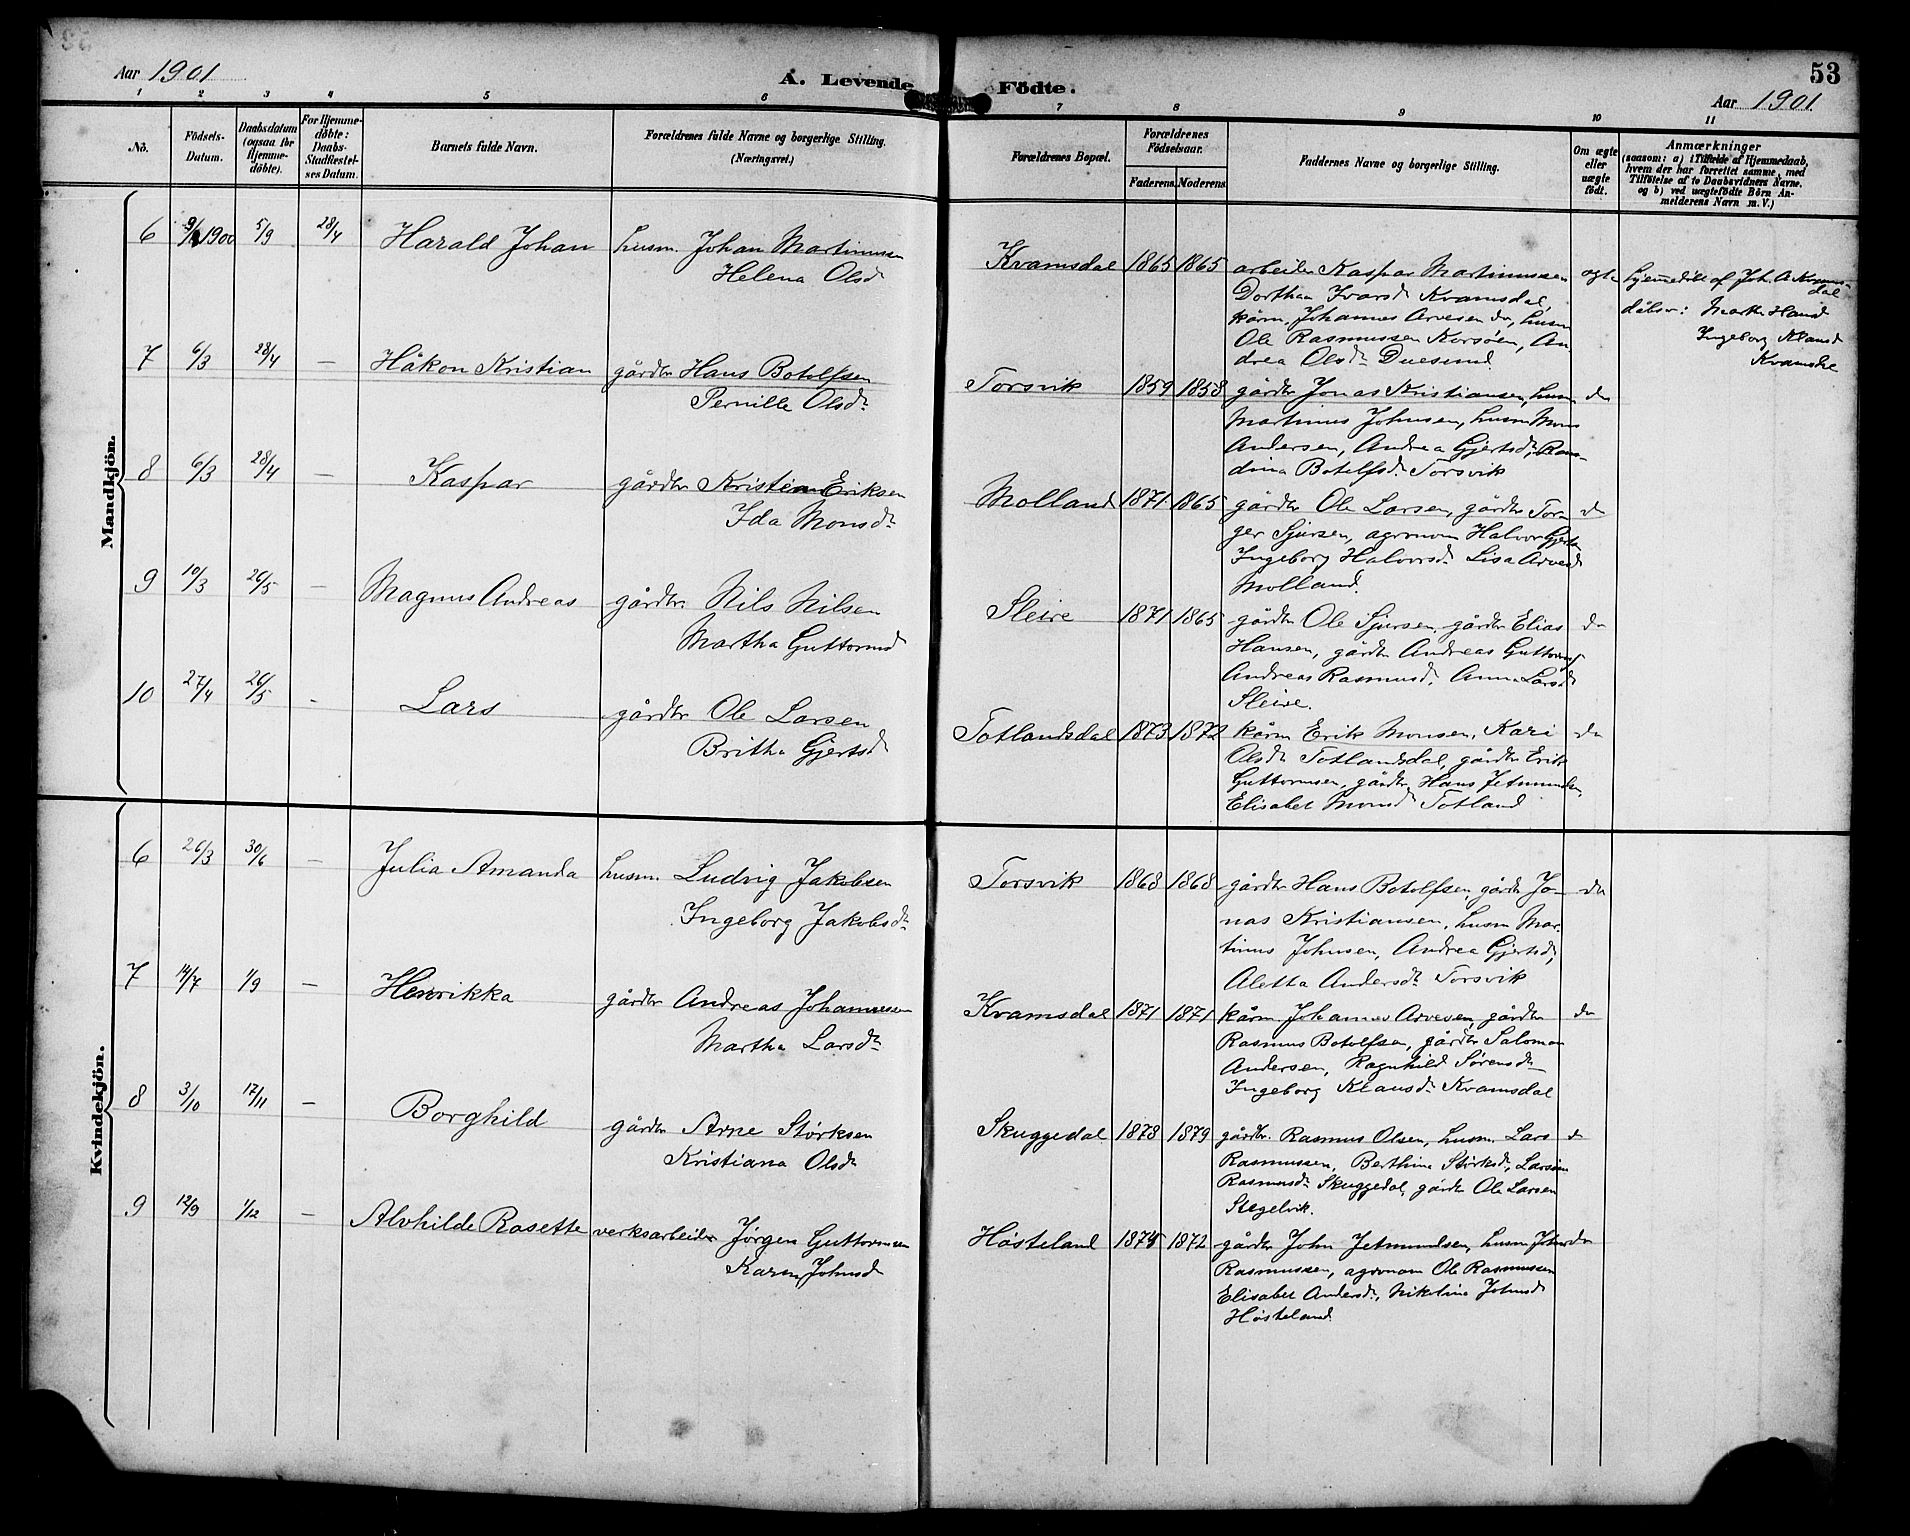 Aar 1901
A. Levende Födte.
53
Aar 1901.
1 2 3 4 5 6 7 8 9 10 11
No.
Födsels-Datum.
Daabsdatum (ogsaa for Hjemmedöbte).
For Hjemmedöbte: Daabs-Stadfæstelses Datum.
Barnets fulde Navn.
Forældrenes fulde Navne og borgerlige Stilling. (Næringsvei.)
Forældrenes Bopæl.
Forældrenes Födselsaar.
Faderens. Moderens.
Faddernes Navne og borgerlige Stilling.
Om ægte eller uægte födt.
Anmærkninger
(saasom: a) i Tilfælde af Hjemmedaab,
hvem der har forrettet samme, med
Tilföielse af to Daabsvidners Navne.
og b) ved uægtefödte Börn An-
melderens Navn m. V.)
Mandkjön.
6 1900 5/9 28/4 Harald Johan husm. Johan Martinussen
Helena Olsd
Kvamsdal 1865 1865 arbeider Kaspar Martinussen ægte
Dorthea Ivarsd Kvamsdal,
kårm. Johannes Arvesen do, husm
Ole Rasmussen Korsøen, An-
drea Olsdr Duesund
hjemmedøbt af Joh. A Kvams-
dal
dåbsv: Marth Hansd
Ingeborg Klausd
Kvamske
7 6/3 28/4 — Håkon Kristian gårdbr Hans Botolfsen
Pernille Olsdr
Torsvik 1859 1858 gårdbr Jonas Kristiansen, husm do
Martinus Johnsen, husm Mons
Andersen, Andrea Gjertsdr, Ran-
dina Botolfsd. Torsvik
8 6/3 28/4 — Kaspar gårdbr Kristian Eriksen
Ida Monsdr
Molland 1871 1865 gårdbr Ole Larsen, gårdbr Tor- do
ger Sjursen, agronom Halvor Gjertsen
Ingeborg Halvorsdr Lisa Arvesd
Molland.
9 10/3 26/5 — Magnus Andreas gårdbr. Nils Nilsen
Martha Guttormsd
Sleire 1871 1865 gårdbr Ole Sjursen, gårdbr Elias do
Hansen, gårdbr Andreas Guttormsen
Andreas Rasmusd, Anna Larsd
Sleire.
10 27/4 26/5 - Lars gårdbr Ole Larsen
Britha Gjertsd
Totlandsdal 1873 1872 kårm Erik Monsen, Kari do
Olsdr Totlandsdal, gårdbr Erik
Guttormsen, gårdbr Hans Jetmundsen,
Elisabet Monsd Totland
Kvindekjön.
6 26/3 30/6 — Julia Amanda husm. Ludvig Jakobsen
Ingeborg Jakobsdr
Torsvik 1868 1868 gårdbr Hans Botolfsen, gårdbr Jo- do
nas Kristiansen, husm Mar-
tinus Johnsen, Andrea Gjertsd,
Aletta Andersdr Torsvik
7 14/7 1/9 — Henrikka gårdbr Andreas Johannessen
Martha Larsdr
Kvamsdal 1871 1871 kårm Johannes Arvesen, gårdbr do
Rasmus Botolfsen, gårdbr Salomon
Andersen, Ragnhild Sørensdr
Ingeborg Klausdr Kvamsdal
8 3/10 17/11 — Borghild gårdbr Arne Størksen
Kristiana Olsdr
Skuggedal 1878 1879 gårdbr. Rasmus Olsen, husm. Lars do
Rasmussen, Berthine Størksd,
Rasmusdr Skuggedal, gårdbr Ole Larsen
Stegelvik.
9 12/9 1/12 — Alvhilde Rosette verksarbeider Jørgen Guttormsen
Karen Johnsd
Høsteland 1875 1872 gårdbr John Jetmundsen, husm Johan do
Rasmussen, agronom Ole Rasmussen
Elisabet Andersdr, Nikoline Johnsd
Høsteland